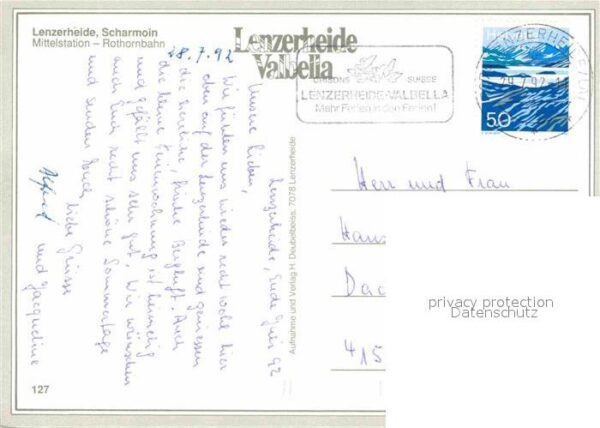 Lenzerheide, Scharmoin
Mittelstation – Rothornbahn
28.7.92
Lenzerheide
Valbella
Lenzerheide, Ende Juli 92
Meine Lieben,
Wir fühlen uns wieder recht wohl hier
oben auf der Lenzerheide und geniessen
die herrliche, frische Bergluft. Auch
die kleine Ferienwohnung ist heimelig
und gefällt uns sehr gut. Wir wünschen
auch Euch recht schöne Sommertage
und senden Euch
liebe Grüsse
Alfred und Jacqueline
Aufnahme und Verlag H. Deubelbeiss, 7078 Lenzerheide
GRISONS SUISSE
LENZERHEIDE-VALBELLA
Mehr Ferien in den Ferien!
LENZERHEIDE/LAI
29.7.92
50
Herr und Frau
Hans
Dac
415
privacy protection
Datenschutz
127